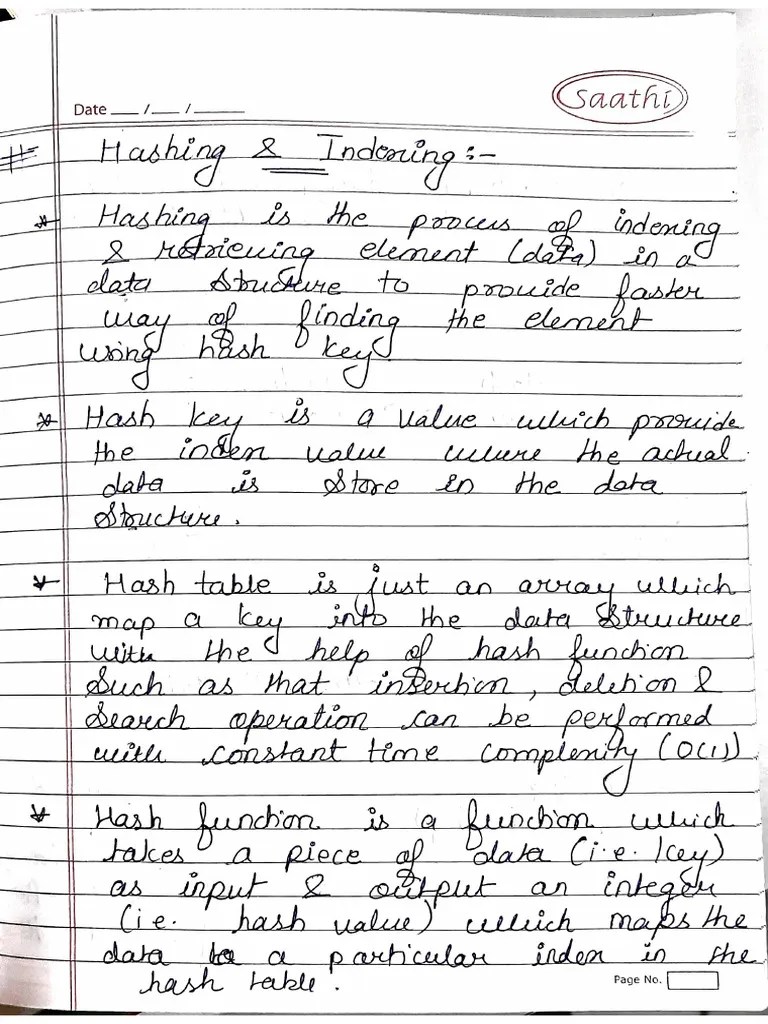 Date ___ / ___ / _____
Saathi
# Hashing & Indexing :-
* Hashing is the process of indexing
& retrieving element (data) in a
data structure to provide faster
way of finding the element
using hash key
* Hash key is a value which provide
the index value where the actual
data is store in the data
structure.
* Hash table is just an array which
map a key into the data structure
with the help of hash function
such as that insertion, deletion &
search operation can be performed
with constant time complexity (O(1))
* Hash function is a function which
takes a piece of data (i.e. key)
as input & output an integer
(i.e. hash value) which maps the
data to a particular index in the
hash table.
Page No.